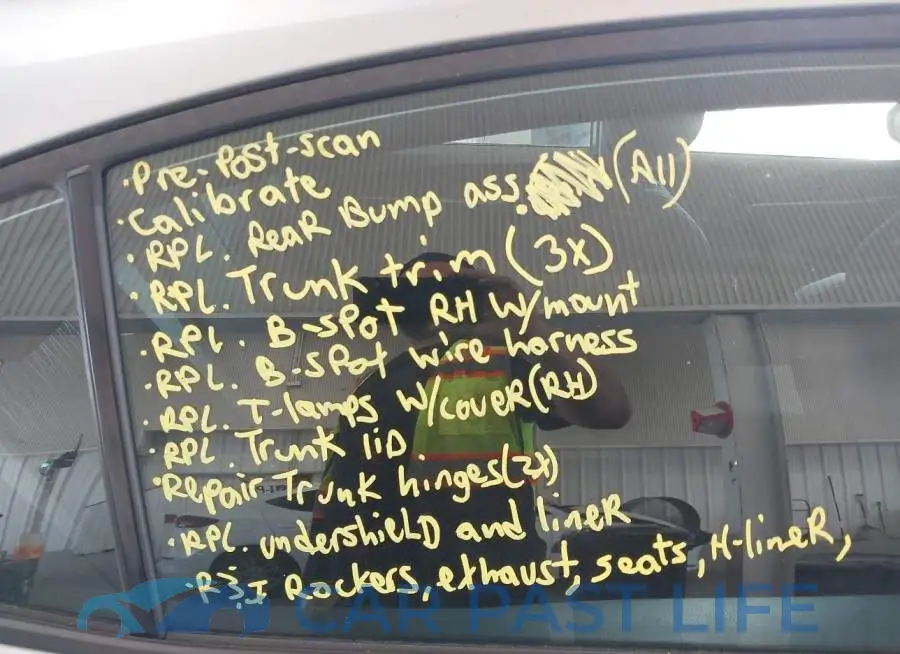 ·Pre-Post-scan
·Calibrate
·RPL. ReaR Bump ass. (All)
·RPL. Trunk trim (3x)
·RPL. B-spot RH w/mount
·RPL. B-spot wire harness
·RPL. T-lamps w/coveR (RH)
·RPL. Trunk liD
·Repair Trunk hinges (2x)
·RPL. undershielD and lineR
·R&I Rockers, exhaust, seats, H-lineR,
CAR PAST LIFE